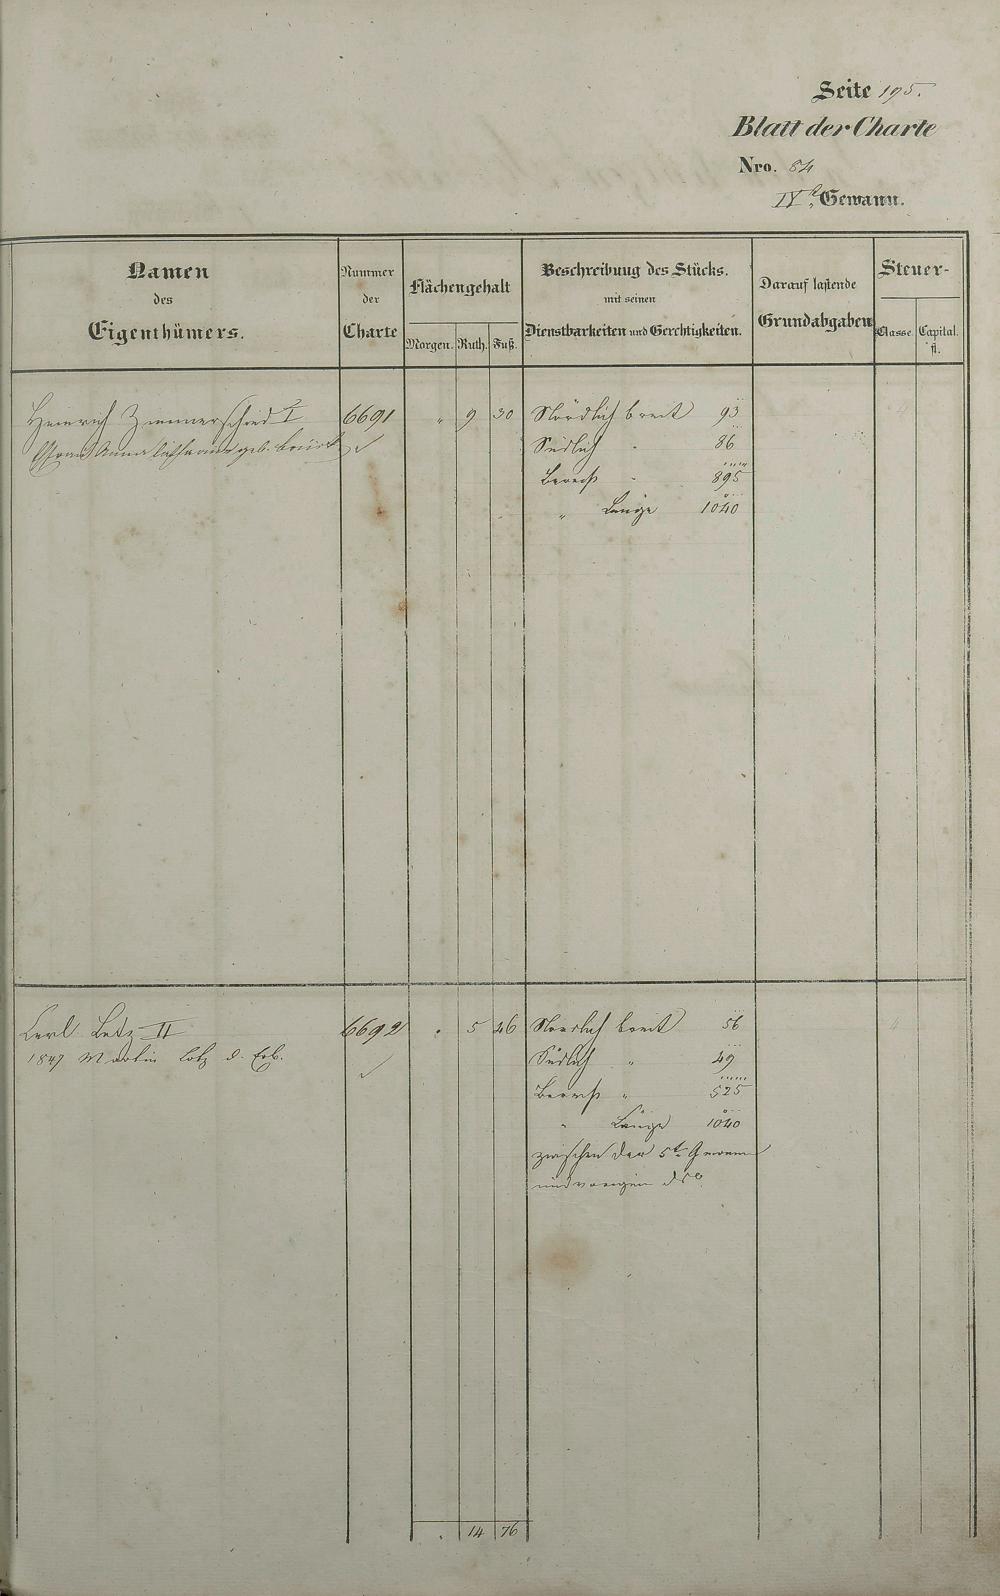 Seite 195.
Blatt der Charte
Nro. 84
IVt. Gewann.
Namen
des
Eigenthümers.
Nummer
der
Charte
Flächengehalt
Morgen. Ruth. Fuß.
Beschreibung des Stücks.
mit seinen
Dienstbarkeiten und Gerchtigkeiten.
Darauf lastende
Grundabgaben
Steuer-
Classe. Capital.
fl.
Heinrich Zimmerschied I 6691 " 9 30 Nördlich breit 93
geb. Südlich " 86
" 895
" Länge 1040
Carl Lotz II 6692 . 5 46 Nördlich breit 56
1847 Martin Lotz d. Erb. Südlich " 49
" 525
" Länge 1040
zwischen der 5t. Gewann
und vorigen
. 14 76